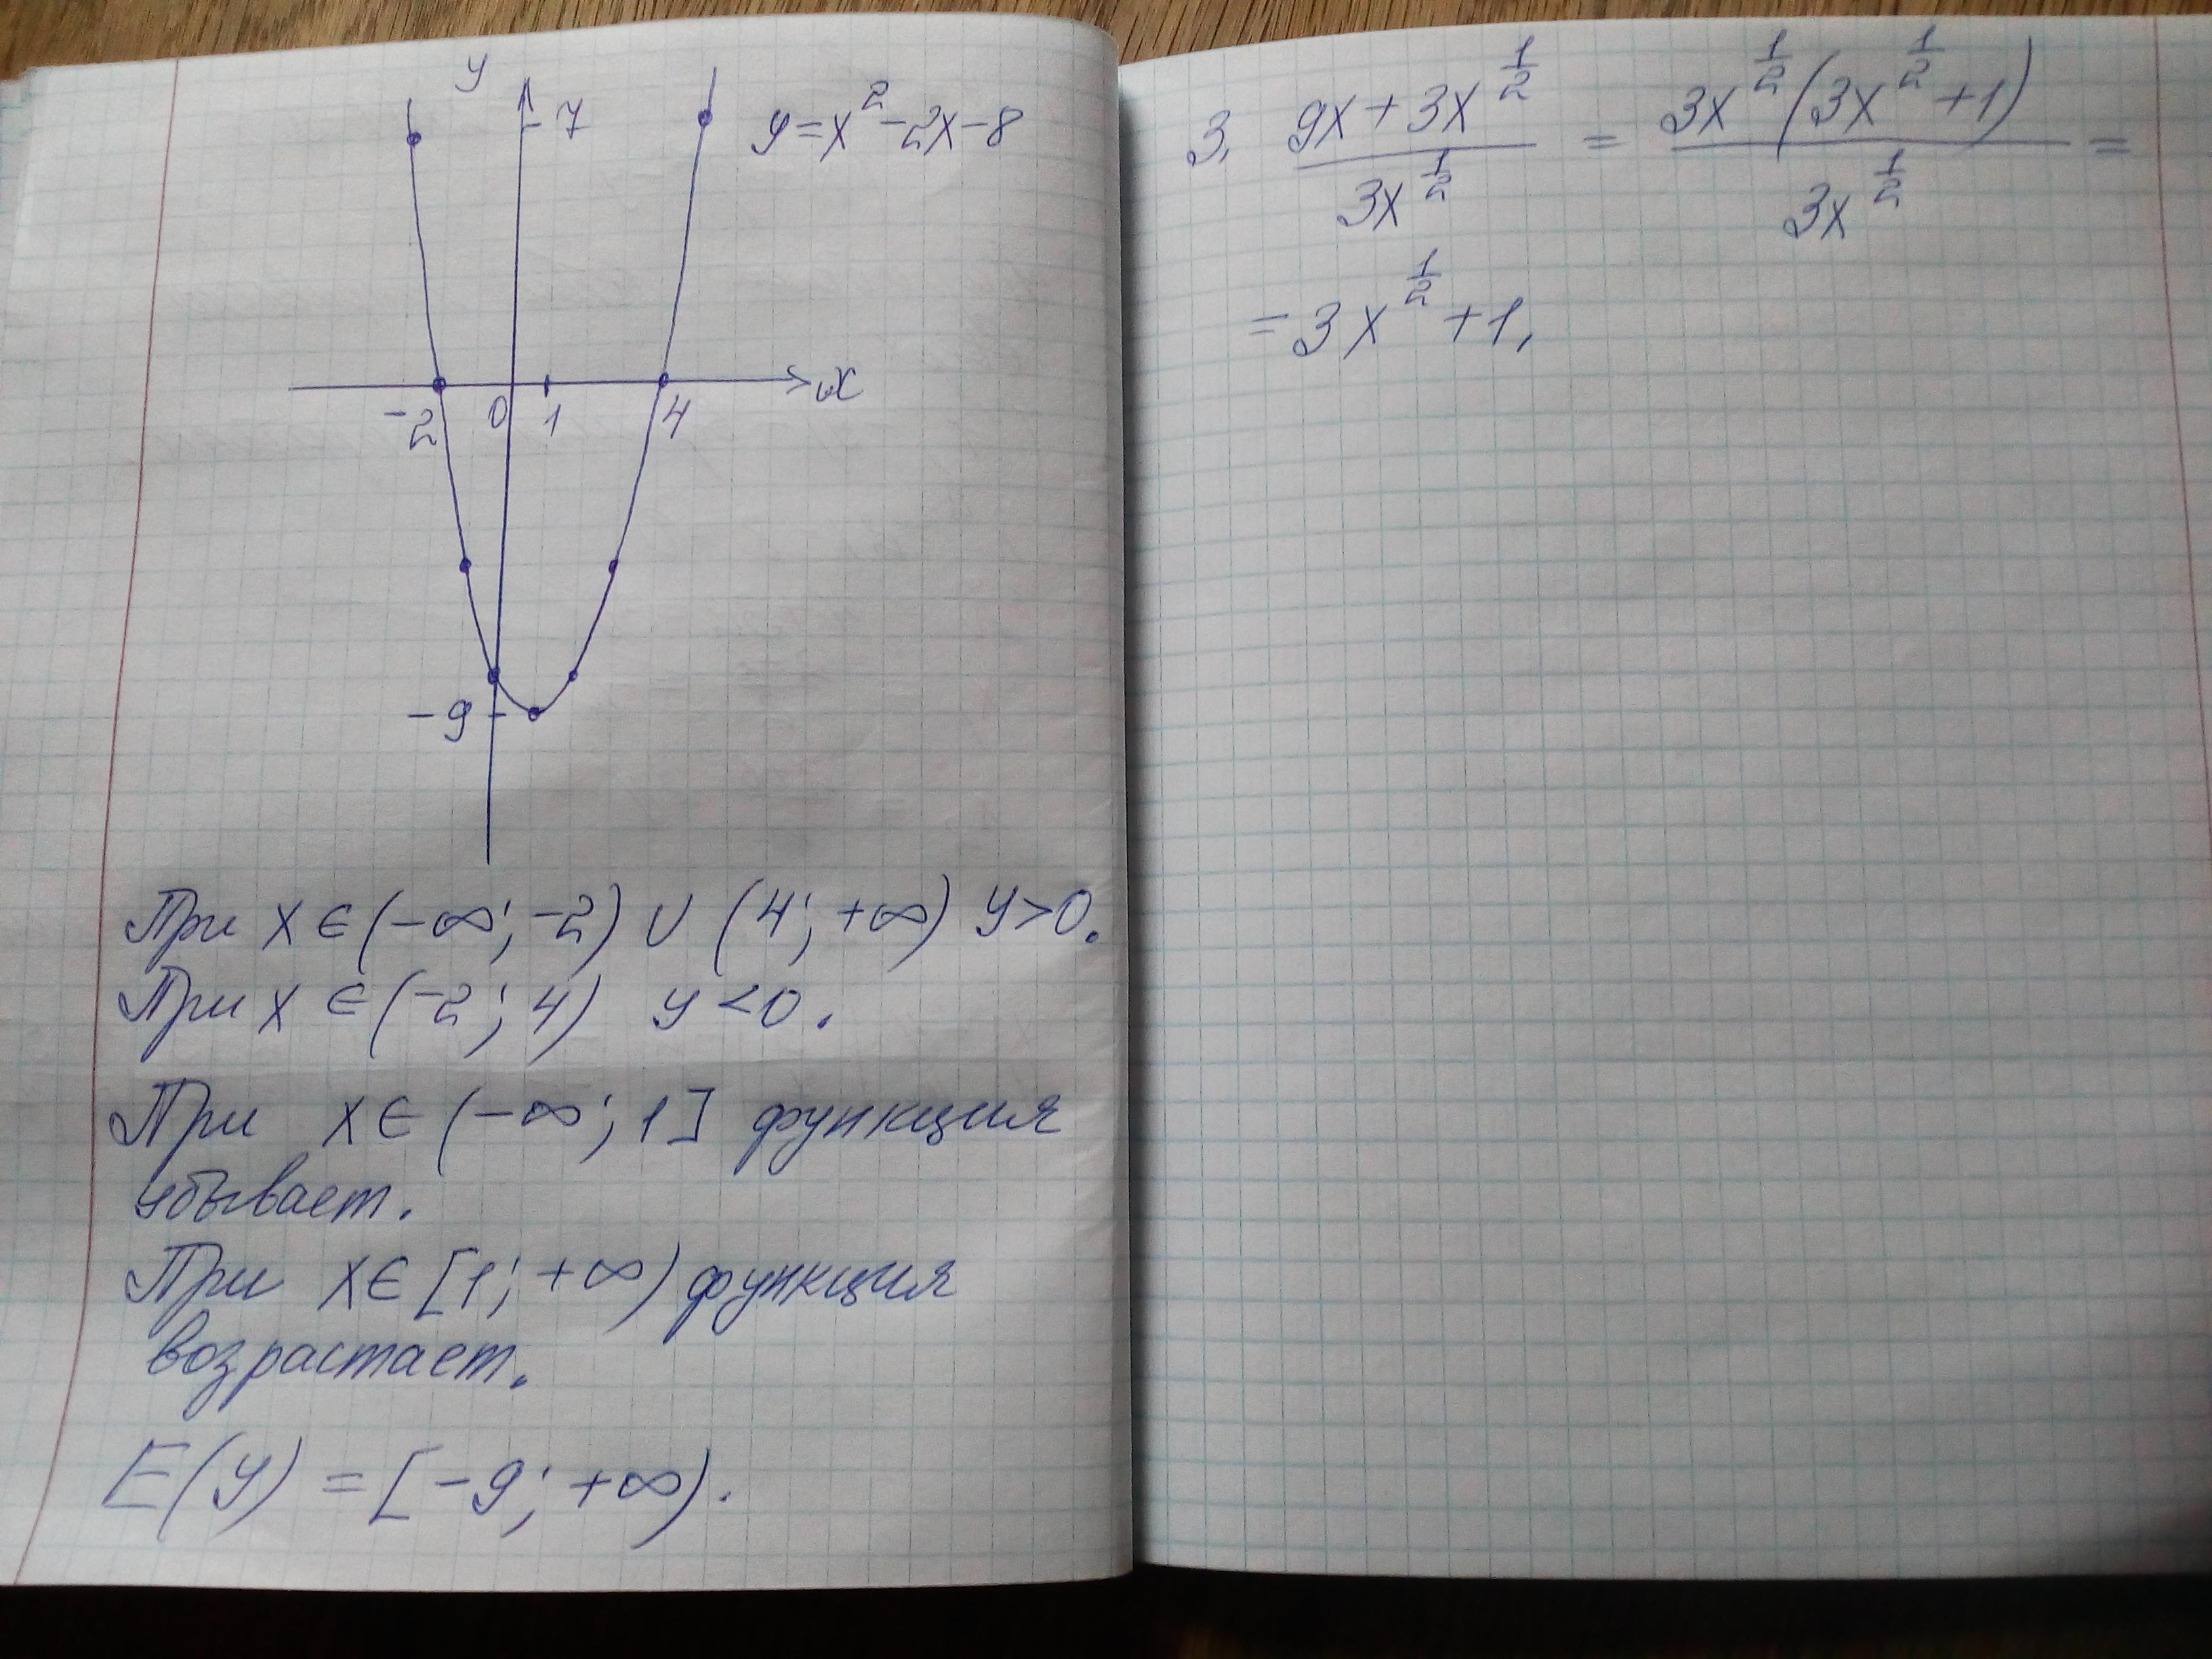 y
7
y=x²-2x-8
-2 0 1 4 x
-9
При x∈(-∞; -2) ∪ (4; +∞) y>0.
При x ∈(-2; 4) y<0.
При x∈(-∞; 1] функция
убывает.
При x∈[1; +∞) функция
возрастает.
E(y) = [-9; +∞).
3. (9x+3x^(1/2))/(3x^(1/2)) = (3x^(1/2)(3x^(1/2)+1))/(3x^(1/2)) =
=3x^(1/2)+1,